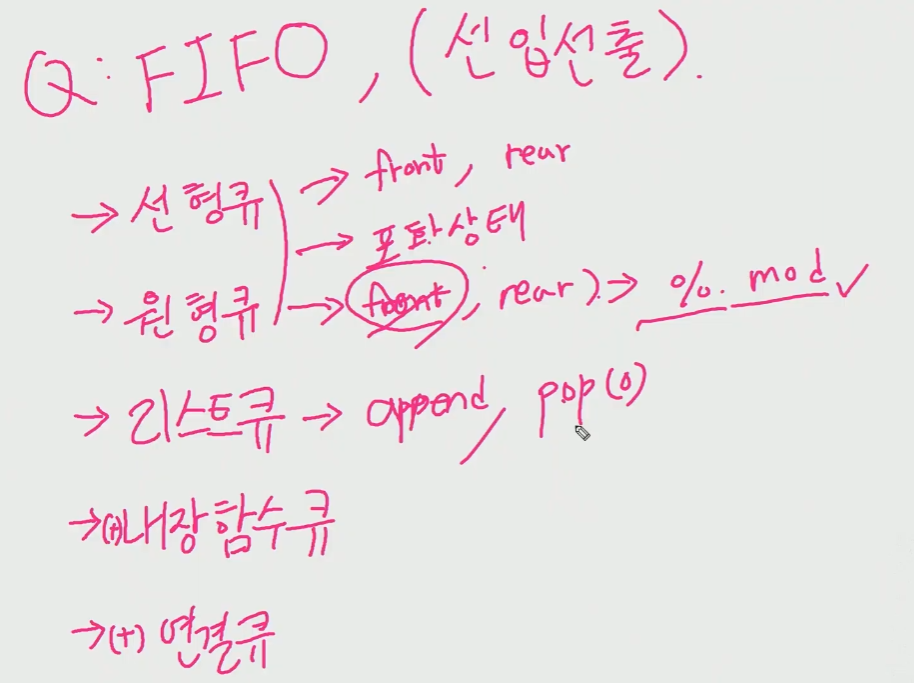 Q: FIFO, (선입선출).
→ 선형큐 → front, rear
→ 포화상태
→ 원형큐 → front, rear) → %. mod ✓
→ 리스트큐 → append, pop(0)
→ (+) 내장함수큐
→ (+) 연결큐